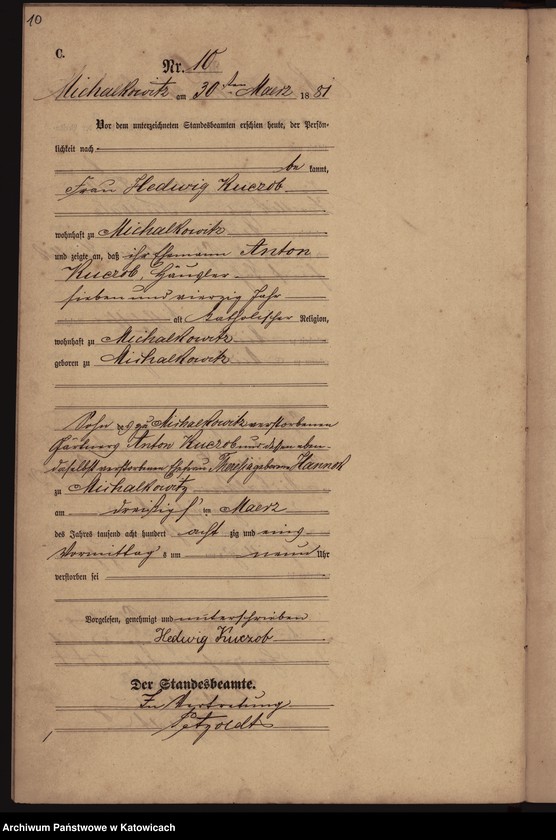 10
C.
Nr. 10
Michalkowitz am 30ten Maerz 1881
Vor dem unterzeichneten Standesbeamten erschien heute, der Persön-
lichkeit nach
be kannt,
Frau Hedwig Kuczob
wohnhaft zu Michalkowitz
und zeigte an, daß ihr Ehemann Anton
Kuczob, Häusler
sieben und vierzig Jahr
alt katholischer Religion,
wohnhaft zu Michalkowitz
geboren zu Michalkowitz
Sohn des zu Michalkowitz verstorbenen
Gärtners Anton Kuczob und dessen eben-
daselbst verstorbenen Ehefrau Thresia geborene Hannek
zu Michalkowitz
am dreißigst ten Maerz
des Jahres tausend acht hundert acht zig und eins
Vormittag s um neun Uhr
verstorben sei
Vorgelesen, genehmigt und unterschrieben
Hedwig Kuczob
Der Standesbeamte.
In Vertretung
Petzoldt
Archiwum Państwowe w Katowicach